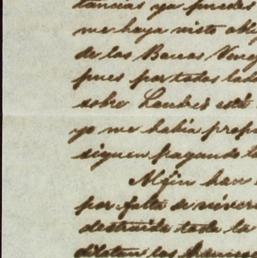 tancias ya puedes
me haya visto obl
de las Bacas Veng
pues por todos lad
sobre Londres está
yo me había prop
siguen pagando l
Al fin han
por falta de viver
destruido toda la
dilatan los